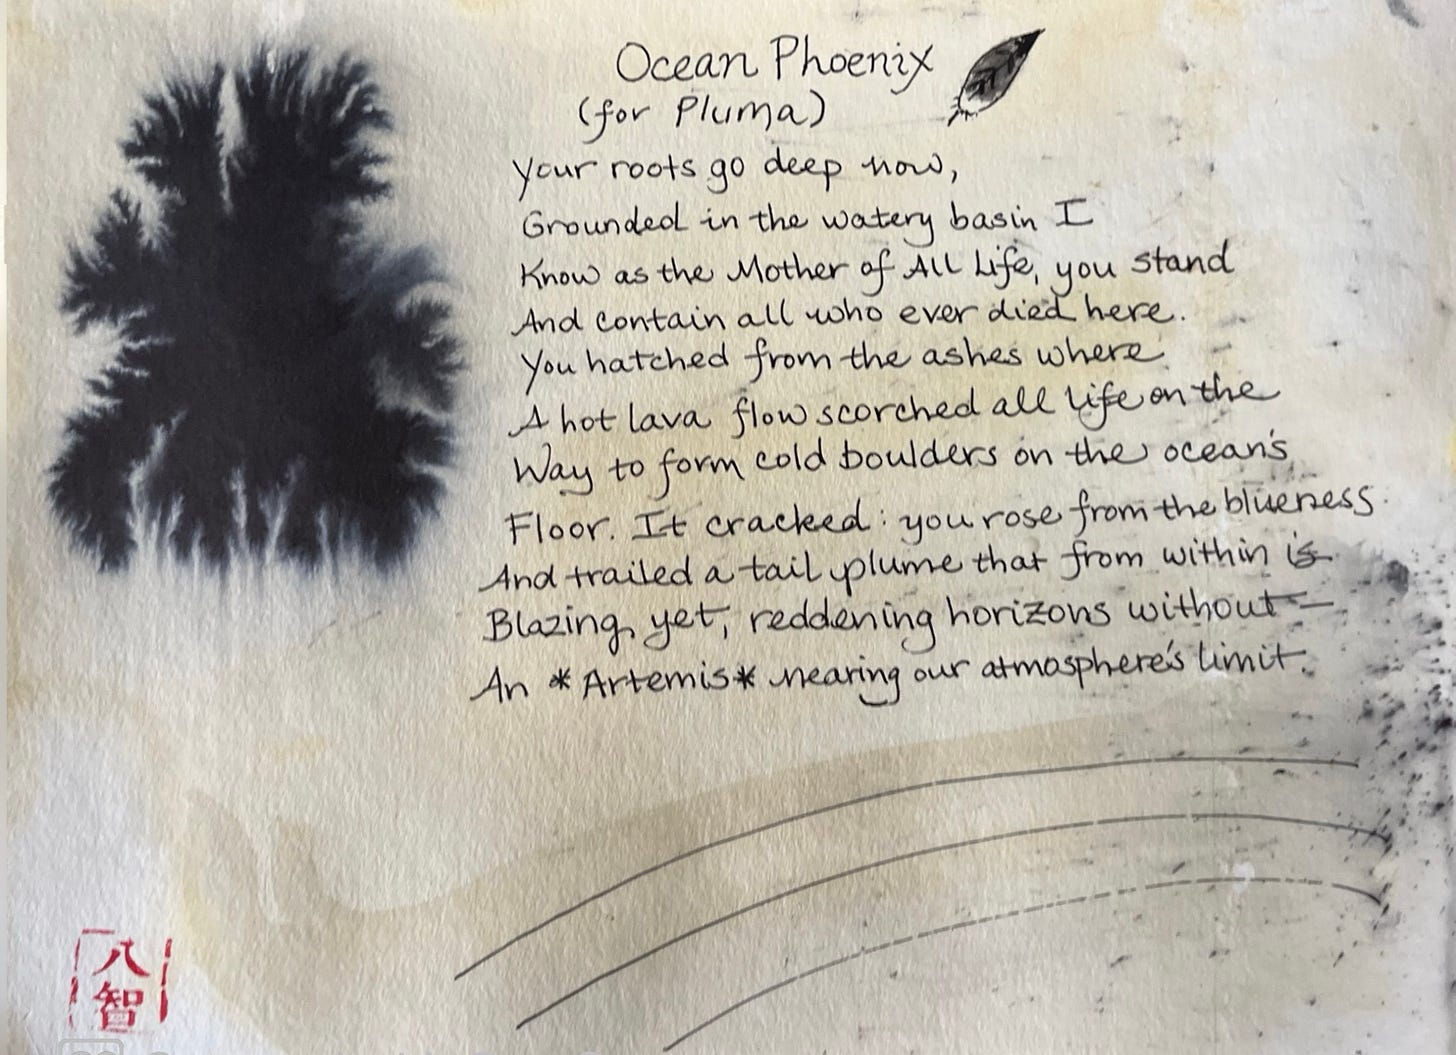 Ocean Phoenix
(for Pluma)
Your roots go deep now,
Grounded in the watery basin I
Know as the Mother of All Life, you stand
And contain all who ever died here.
You hatched from the ashes where
A hot lava flow scorched all life on the
Way to form cold boulders on the ocean's
Floor. It cracked: you rose from the blueness
And trailed a tail plume that from within is
Blazing, yet, reddening horizons without—
An *Artemis* nearing our atmosphere's limit.
八
智